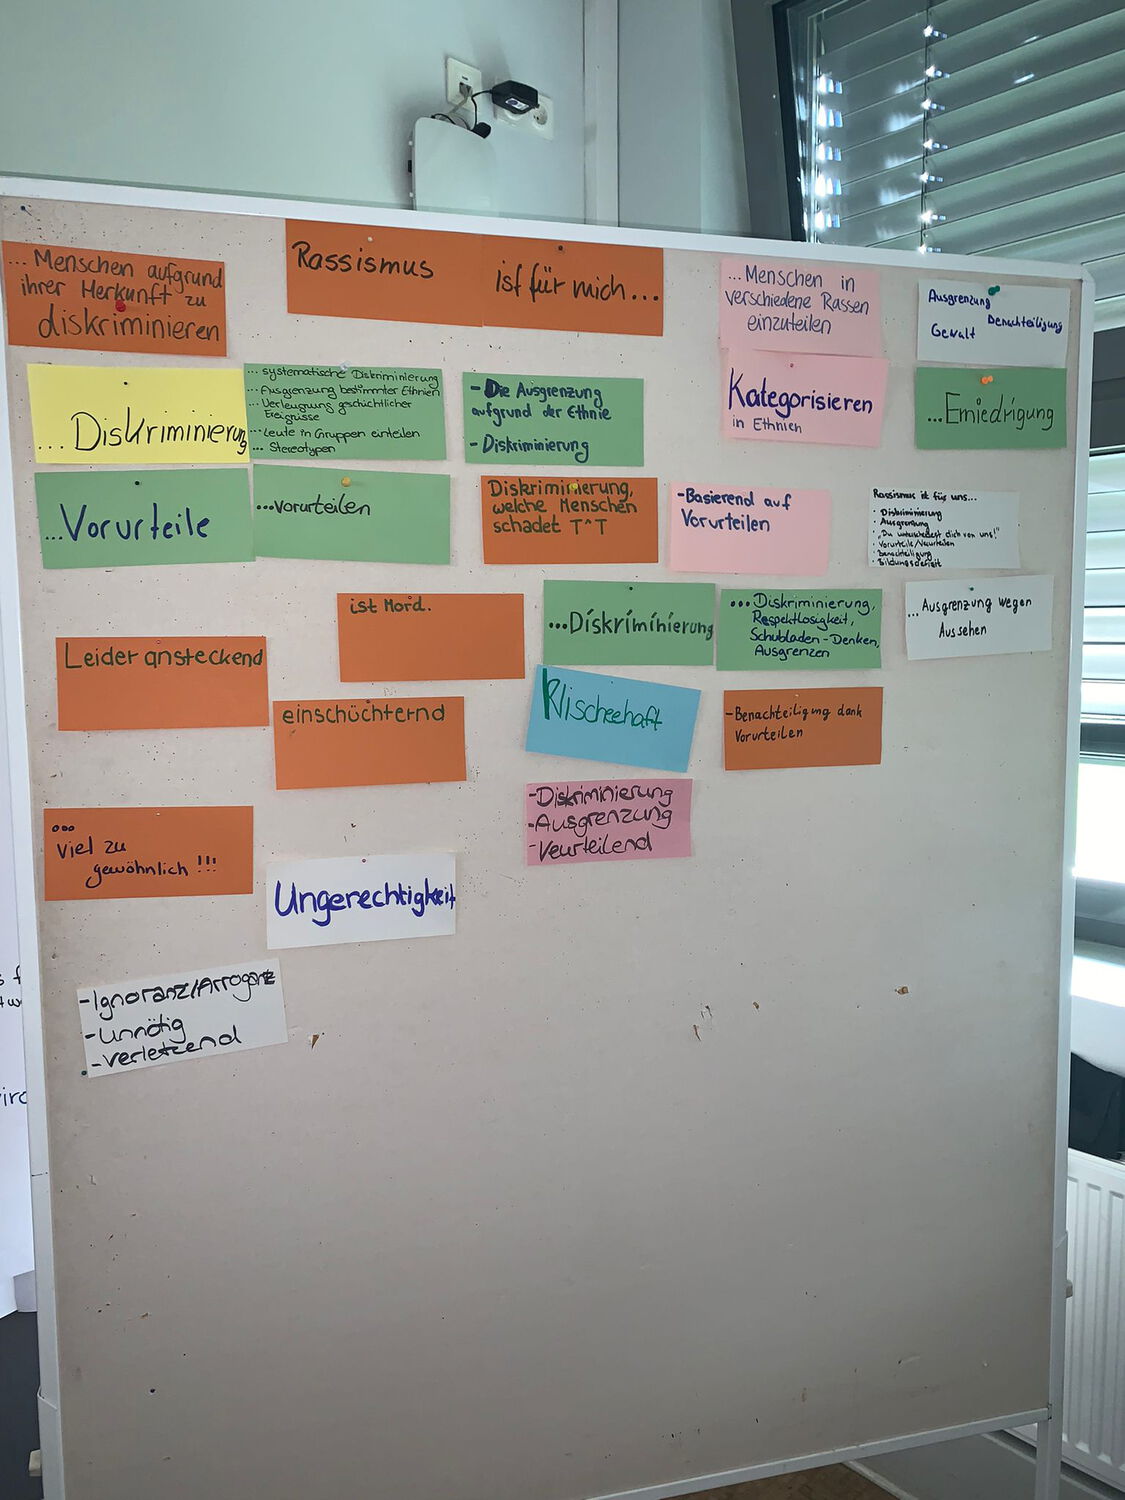 Rassismus
ist für mich...
... Menschen aufgrund
ihrer Herkunft zu
diskriminieren
...Menschen in
verschiedene Rassen
einzuteilen
Ausgrenzung
Benachteiligung
Gewalt
... Diskriminierung
... systematische Diskriminierung
... Ausgrenzung bestimmter Ethnien
... Verleugnung geschichtlicher
Ereignisse
... Leute in Gruppen einteilen
... Stereotypen
- Die Ausgrenzung
aufgrund der Ethnie
- Diskriminierung
Kategorisieren
in Ethnien
...Erniedrigung
...Vorurteile
...vorurteilen
Diskriminierung,
welche Menschen
schadet T^T
-Basierend auf
Vorurteilen
Rassismus ist für uns...
· Diskriminierung
· Ausgrenzung
· „Du unterscheidest dich von uns!"
· Vorurteile/Verurteilen
· Benachteiligung
· Bildungsdefizit
ist Mord.
...Diskriminierung
...Diskriminierung,
Respektlosigkeit,
Schubladen-Denken,
Ausgrenzen
...Ausgrenzung wegen
Aussehen
Leider ansteckend
einschüchternd
Klischeehaft
-Benachteiligung dank
Vorurteilen
...
viel zu
gewöhnlich !!!
Ungerechtigkeit
-Diskriminierung
-Ausgrenzung
-Veurteilend
-Ignoranz/Arroganz
-unnötig
-verletzend